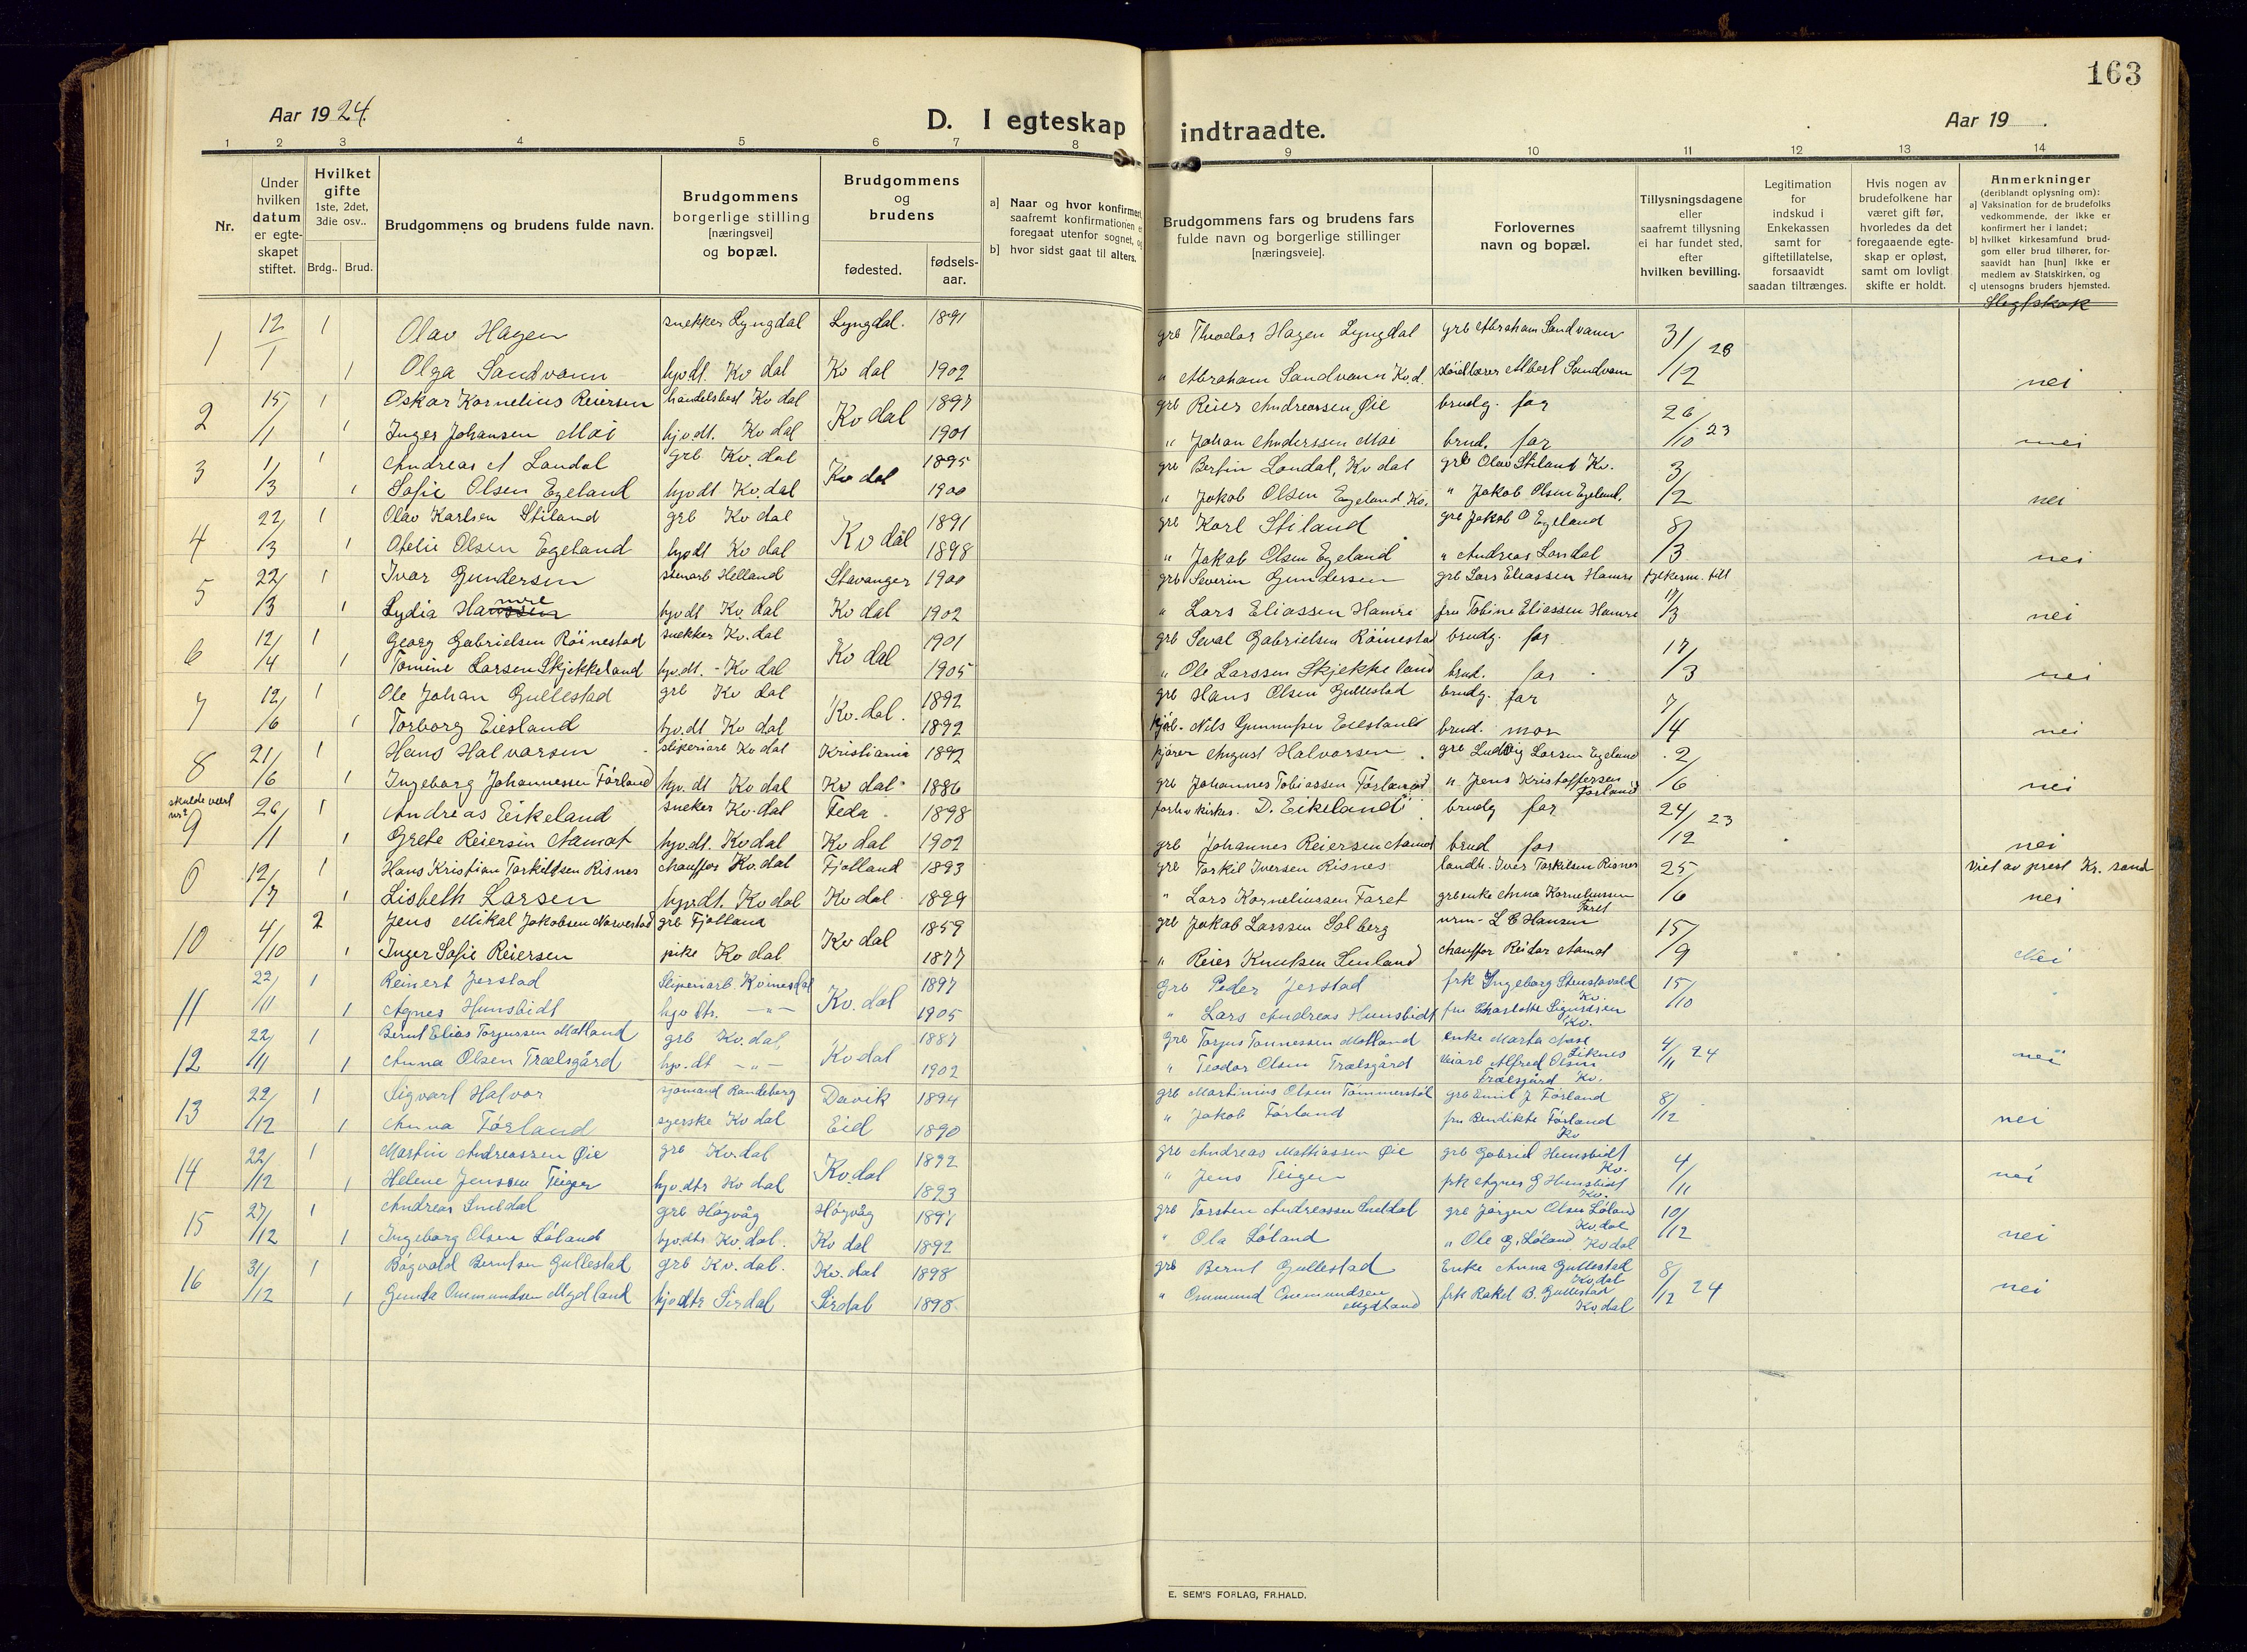 163
Aar 1924.
D. I egteskap indtraadte.
Aar 19 .
1 2 3 4 5 6 7 8 9 10 11 12 13 14
Nr.
Under hvilken datum er egteskapet stiftet.
Hvilket gifte 1ste, 2det, 3die osv..
Brdg.. Brud.
Brudgommens og brudens fulde navn.
Brudgommens borgerlige stilling [næringsvei] og bopæl.
Brudgommens og brudens
fødested. fødsels-aar.
a] Naar og hvor konfirmert, saafremt konfirmationen foregaat utenfor sognet,
b] hvor sidst gaat til alters.
Brudgommens fars og brudens fars fulde navn og borgerlige stillinger [næringsveie].
Forlovernes navn og bopæl.
Tillysningsdagene eller saafremt tillysning ei har fundet sted, efter hvilken bevilling.
Legitimation for indskud i Enkekassen samt for giftetillatelse, forsaavidt saadan tiltrænges.
Hvis nogen av brudefolkene har været gift før, hvorledes da det foregaaende egteskap er opløst, samt om lovligt skifte er holdt.
Anmerkninger
(deriblandt oplysning om):
a] Vaksination for de brudefolks vedkommende, der ikke er konfirmert her i landet;
b] hvilket kirkesamfund brudgom eller brud tilhører, forsaavidt han [hun] ikke er medlem av Statskirken, og
c] utensogns bruders hjemsted.
Slegtskap
1 12/1 1 Olav Hagen snekker Lyngdal Lyngdal. 1891 grb Theodor Hagen Lyngdal grb Abraham Sandvann 31/12 23
1 Olga Sandvann hjv.dt. Kv dal Kv dal 1902 " Abraham Sandvann Kv.d. sløidlærer Albert Sandvann nei
2 15/1 1 Oskar Kornelius Reiersen handelsbest Kv dal Kv dal 1897 grb Reier Andreassen Øie brudg. far 26/10 23
1 Inger Johansen Moi hjv.dt. Kv dal 1901 " Johan Anderssen Moi brud. far nei
3 1/3 1 Andreas A Londal grb Kv. dal Kv dal 1895 gre Bertin Londal, Kv dal grb Olav Stiland Kv. 3/2
1 Sofie Olsen Egeland hjvdt Kv. dal 1900 " Jakob Olsen Egeland Kv. " Jakob Olsen Egeland. nei
4 22/3 1 Olav Karlsen Stiland grb Kv dal Kv dal 1891 grb Karl Stiland gre Jakob O Egeland 8/3
1 Ofelie Olsen Egeland hjvdt Kv dal 1898 " Jakob Olsen Egeland " Andreas Londal nei
5 22/3 1 Ivar Gundersen stenarb Helland Stavanger 1900 grb Severin Gundersen grb Lars Eliassen Hamre fylkesm. till
1 Lydia Hamre hjvdt Kv. dal Kv dal 1902 " Lars Eliassen Hamre fru Tobine Eliassen Hamre 17/3 nei
6 12/4 1 Georg Gabrielsen Røinestad snekker Kv. dal Kv dal 1901 grb Seval Gabrielsen Røinestad brudg. far 17/3
1 Tomine Larsen Skjekkeland hjv.dt. - Kv dal 1905 " Ole Larssen Skjekkeland brud. far nei
7 12/6 1 Ole Johan Gullestad grb Kv dal Kv. dal. 1892 grb Hans Olsen Gullestad brudg. far 7/4
1 Torborg Eiesland hjv.dt Kv dal 1892 Nils Gunnufsen Eiesland brud. mor nei
8 21/6 1 Hans Halvorsen Kv dal Kristiania 1892 August Halvorsen gre Ludvig Larsen Egeland 2/6
1 Ingeborg Johannessen Førland hjv. dt Kv dal Kv dal 1886 grb Johannes Tobiassen Førland " Jens Kristoffersen Førland nei
skulde vært nr 2
9 26/1 1 Andreas Eikeland sneker Kv. dal Feda 1898 D. Eikeland brudg far 24/12 23
1 Grete Reiersen Aamot hjv.dt. Kv dal Kv dal 1902 grb Johannes Reiersen Aamot brud far nei
0 12/7 1 Hans Kristian Torkildsen Risnes chauffør Kv. dal Fjotland 1893 gre Torkil Iversen Risnes landh. Iver Torkilsen Risnes 25/6 Viet av prest Kr. sand
1 Lisbeth Larsen hjvdt. Kv dal Kv dal 1899 " Lars Korneliussen Faret grb enke Anna Korneliussen Faret nei
10 4/10 2 Jens Mikal Jakobsen Narvestad grb Fjotland Kv dal 1859 gre Jakob Larssen Solberg urm- L E Hansen 15/9
1 Inger Sofie Reiersen pike Kv dal 1877 " Reier Knutsen Senland chauffør Reidar Aamot Nei
11 22/11 1 Reinert Jerstad Sliperiarb. Kvinesdal Kv. dal 1897 grb Peder Jerstad frk Ingeborg Kv. 15/10
1 Agnes Hunsbidt hjv dtr. -"- 1905 " Lars Andreas Hunsbidt fru Charlotte Sigurdsen Kv.
12 22/11 1 Bernt Elias Torjussen Matland grb Kv. dal Kv dal 1887 grb Torjus Tønnessen Matland enke Marta Aase Liknes 4/11 24
1 Anna Olsen Trælsgård hjv. dt -"- 1902 " Teodor Olsen Trælsgård Veiarb Alfred Olsen Trælsgård Kv. nei
13 22/12 1 Sigvart Halvor sjømand Randeberg Davik 1894 grb Martinius Olsen Tømmerstøl grb Emil J Førland 8/12
1 Anna Førland syerske Kv dal Eid 1890 " Jakob Førland fru Bendikte Førland Kv nei
14 22/12 1 Martin Andreassen Øie grb Kv. dal Kv. dal 1892 grb Andreas Mathiassen Øie grb Gabriel Hunsbidt Kv. 4/11
1 Helene Jenssen Teigen hjv.dtr Kv dal 1893 " Jens Teigen frk Agnes G Hunsbidt Kv. nei
15 27/12 1 Andreas Sneldal grb Høgvåg Høgvåg 1897 grb Torsten Andreassen Sneldal gre Jørgen Olsen Løland Kv. dal 10/12
1 Ingeborg Olsen Løland hjv.dtr Kv. dal. Kv dal 1892 " Ola Løland " Ole G. Løland Kv dal nei
16 31/12 1 Bøgvald Berntsen Gullestad grb Kv. dal. Kv. dal 1898 grb Bernt Gullestad Enke Anna Gullestad Kv. dal 8/12 24
1 Gunda Ommundsen Mydland hjvdtr Sirdal Sirdal 1898 " Ommund Ommundsen Mydland frk Rakel B. Gullestad Kv dal nei
E. SEM'S FORLAG, FR.HALD.